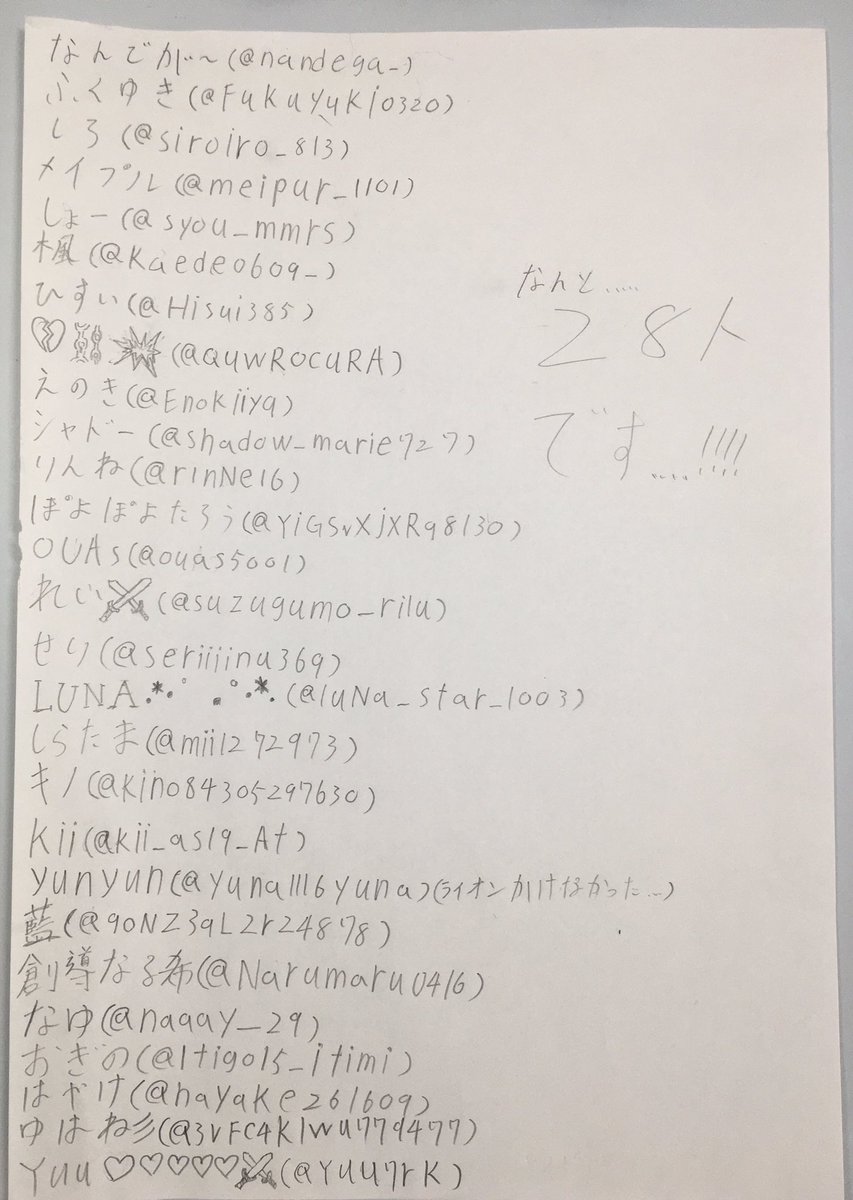 なんでが〜(@nandega_)
ふくゆき(@Fukuyuki0320)
しろ(@siroiro_813)
メイプル(@meipur_1101)
しょー(@syou_mmrs)
楓(@Kaede0609_)
ひすい(@Hisui385)
💔👯💥(@QUWROCURA)
えのき(@Enokiiya)
シャドー(@shadow_marie727)
りんね(@rinNe16)
ぽよぽよたろう(@YiGSvXjXRq8130)
OUAs(@ouas5001)
れい⚔(@suzugumo_rilu)
せり(@seriiiinu369)
LUNA.*･ﾟ .ﾟ･*.(@luNa_star_1003)
しらたま(@mii1272973)
キノ(@kino84305297630)
kii(@kii_as19_At)
yunyun(@yuna1116yuna)(ライオンかけなかった...)
藍(@9oNZ3qL2r24878)
創導なる希(@Narumaru0416)
なゆ(@naaay_29)
おぎの(@Itigo15_itimi)
はやけ(@hayake261609)
ゆはね彡(@3vFC4k1wu779477)
Yuu♡♡♡♡♡⚔(@Yuu7rK)
なんと.....
28人
です....!!!!